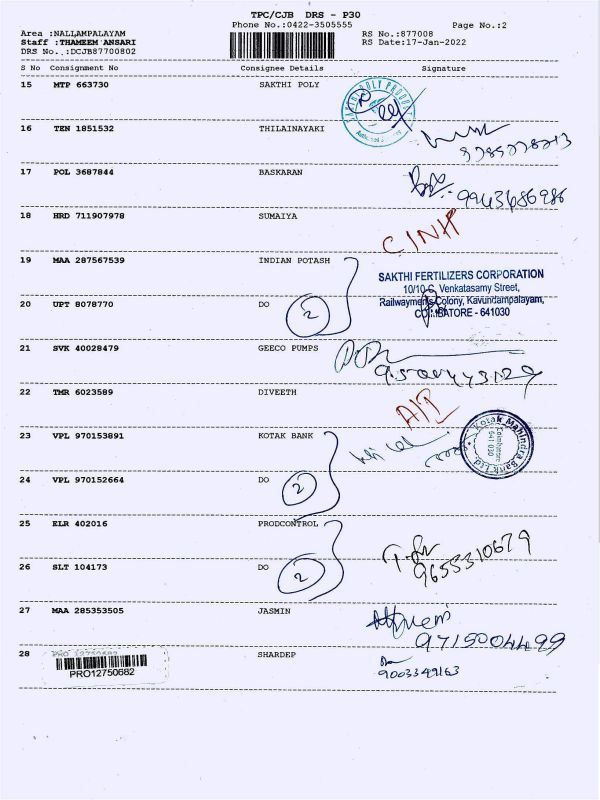 TPC/CJB DRS - P30
Phone No.:0422-3505555 Page No.:2
Area :NALLAMPALAYAM RS No.:877008
Staff :THAMEEM ANSARI RS Date:17-Jan-2022
DRS No.:DCJB87700802
S No Consignment No Consignee Details Signature
15 MTP 663730 SAKTHI POLY
16 TEN 1851532 THILAINAYAKI
17 POL 3687844 BASKARAN
9943686986
18 HRD 711907978 SUMAIYA
19 MAA 287567539 INDIAN POTASH
SAKTHI FERTILIZERS CORPORATION
10/10-G, Venkatasamy Street,
Railwaymens Colony, Kavundampalayam,
COIMBATORE - 641030
20 UPT 8078770 DO 2
21 SVK 40028479 GEECO PUMPS
22 TMR 6023589 DIVEETH
23 VPL 970153891 KOTAK BANK
Kotak Mahindra Bank Ltd.
Coimbatore
641 030
24 VPL 970152664 DO 2
25 ELR 402016 PRODCONTROL
26 SLT 104173 DO 2
9655310679
27 MAA 285353505 JASMIN
9715004499
28 PRO 12750682 SHARDEP
PRO12750682
9003349163